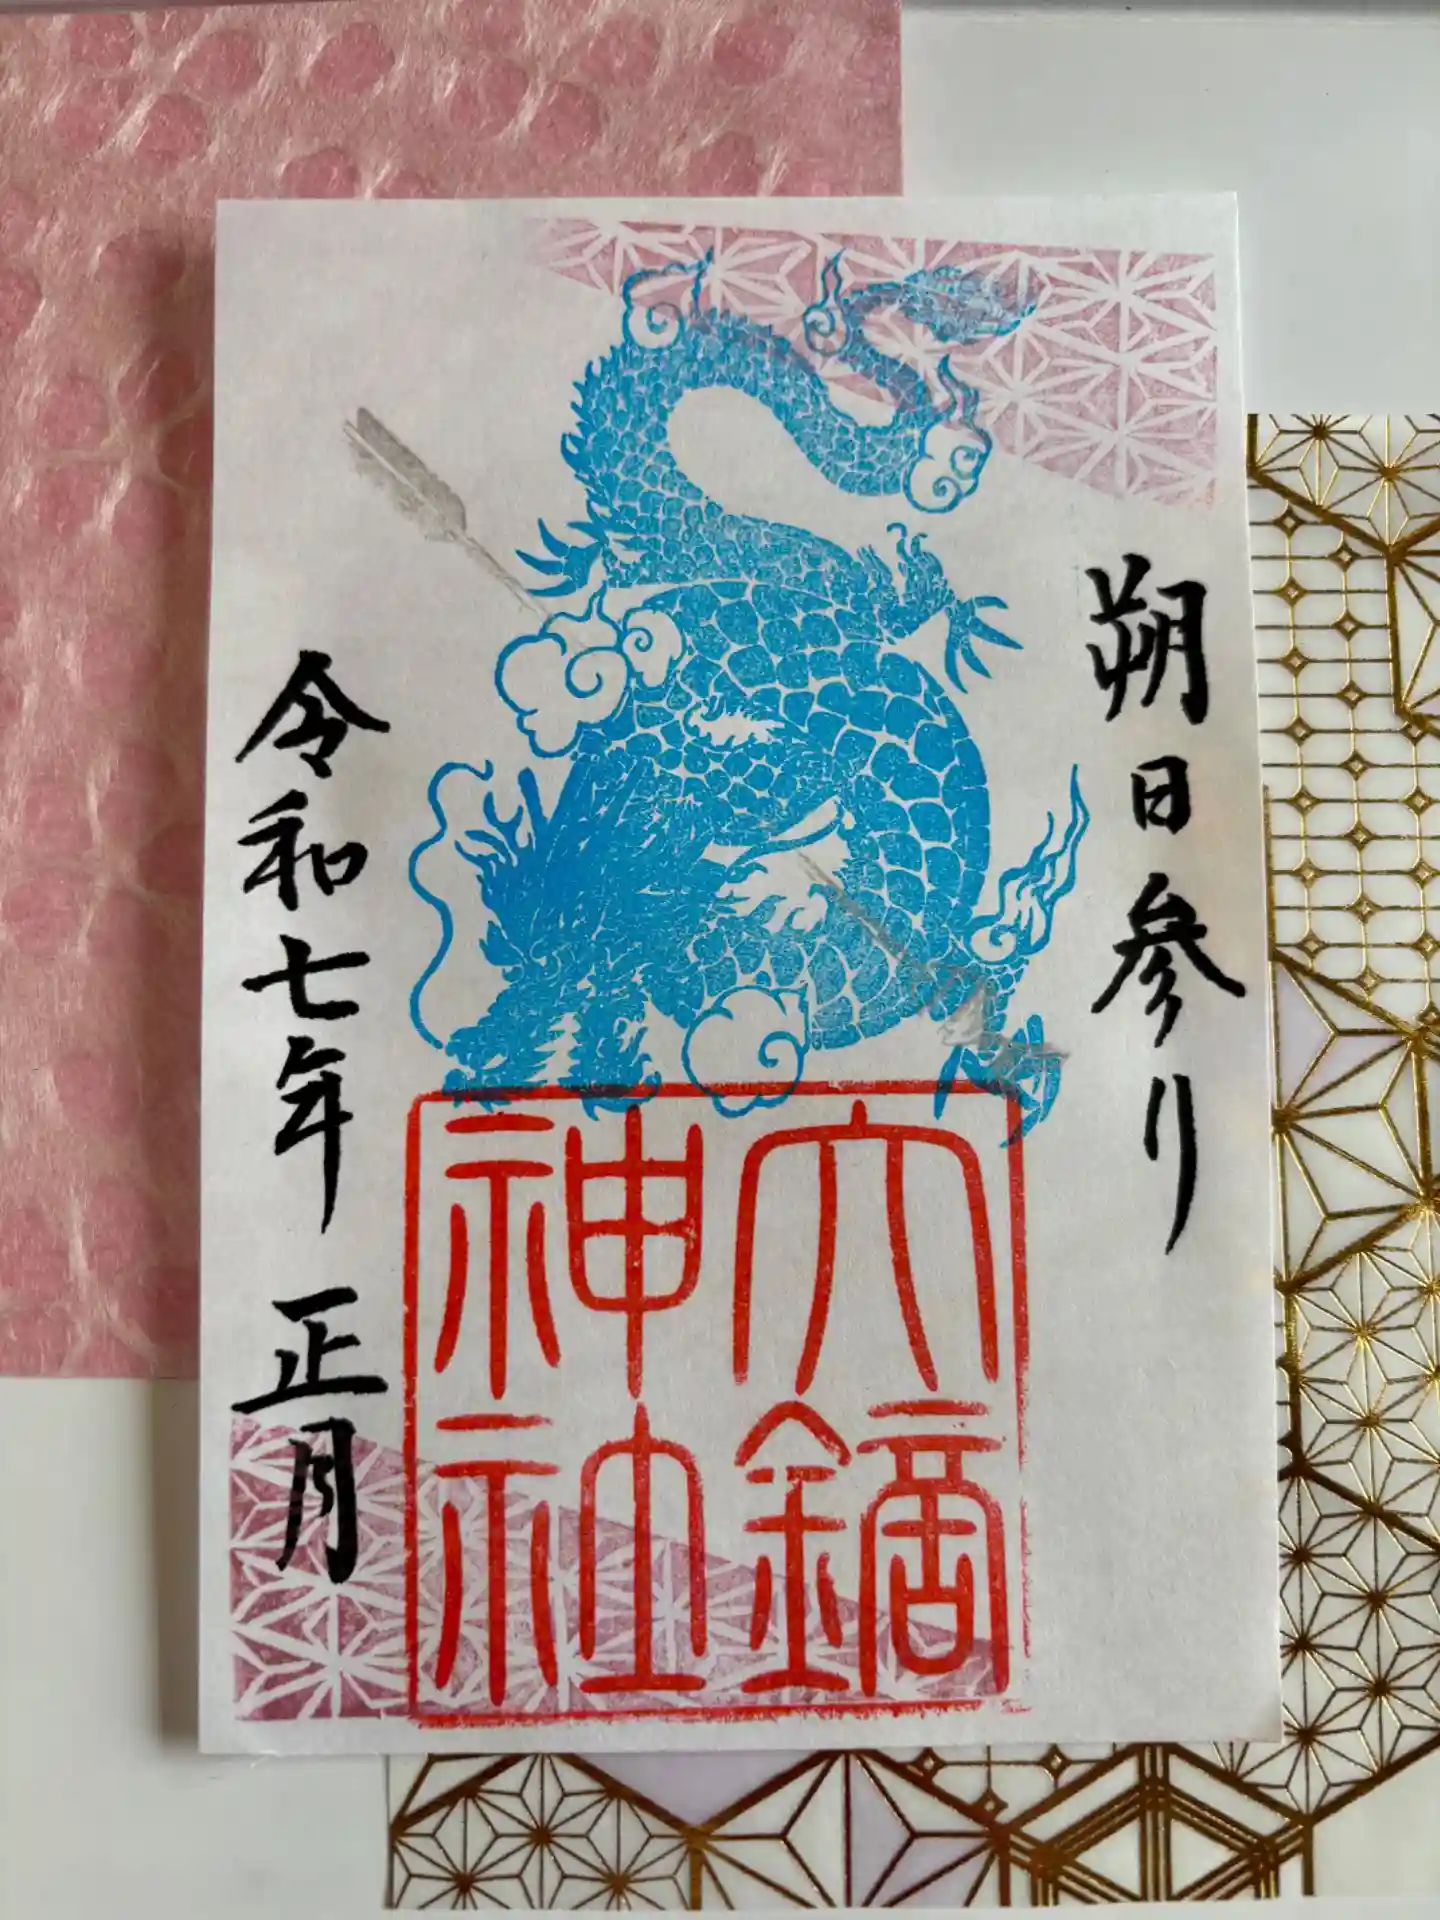 朔日参り
大鏑
神社
令和七年 正月